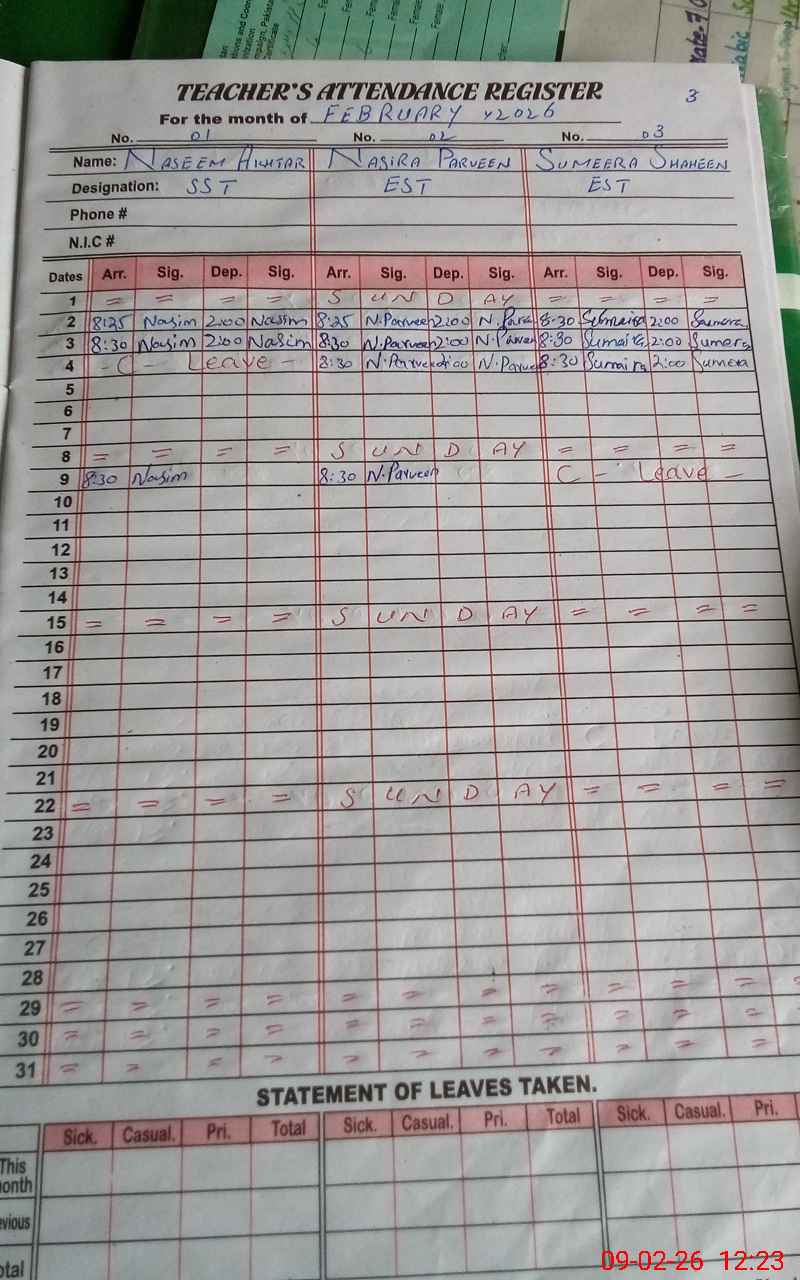 TEACHER'S ATTENDANCE REGISTER 3
For the month of FEBRUARY 2026
No. 01 No. 02 No. 03
Name: NASEEM AKHTAR NASIRA PARVEEN SUMEERA SHAHEEN
Designation: SST EST EST
Phone #
N.I.C #
Dates Arr. Sig. Dep. Sig. Arr. Sig. Dep. Sig. Arr. Sig. Dep. Sig.
1 = = = = S UN D AY = = = =
2 8:25 Nasim 2:00 Nasim 8:25 N.Parveen 2:00 N. 8:30 Sumaira 2:00 Sumera
3 8:30 Nasim 2:00 Nasim 8:30 N.Parveen 2:00 N. 8:30 Sumaira 2:00 Sumera
4 - C - Leave - 8:30 N.Parveen 2:00 N. 8:30 Sumaira 2:00 Sumera
5
6
7
8 = = = = S UN D AY = = = =
9 8:30 Nasim 8:30 N.Parveen C - Leave -
10
11
12
13
14
15 = = = = S UN D AY = = = =
16
17
18
19
20
21
22 = = = = S UN D AY = = = =
23
24
25
26
27
28
29 = = = = = = = = = = = =
30 = = = = = = = = = = = =
31 = = = = = = = = = = = =
STATEMENT OF LEAVES TAKEN.
Sick. Casual. Pri. Total Sick. Casual. Pri. Total Sick. Casual. Pri.
This
onth
evious
otal
09-02-26 12:23